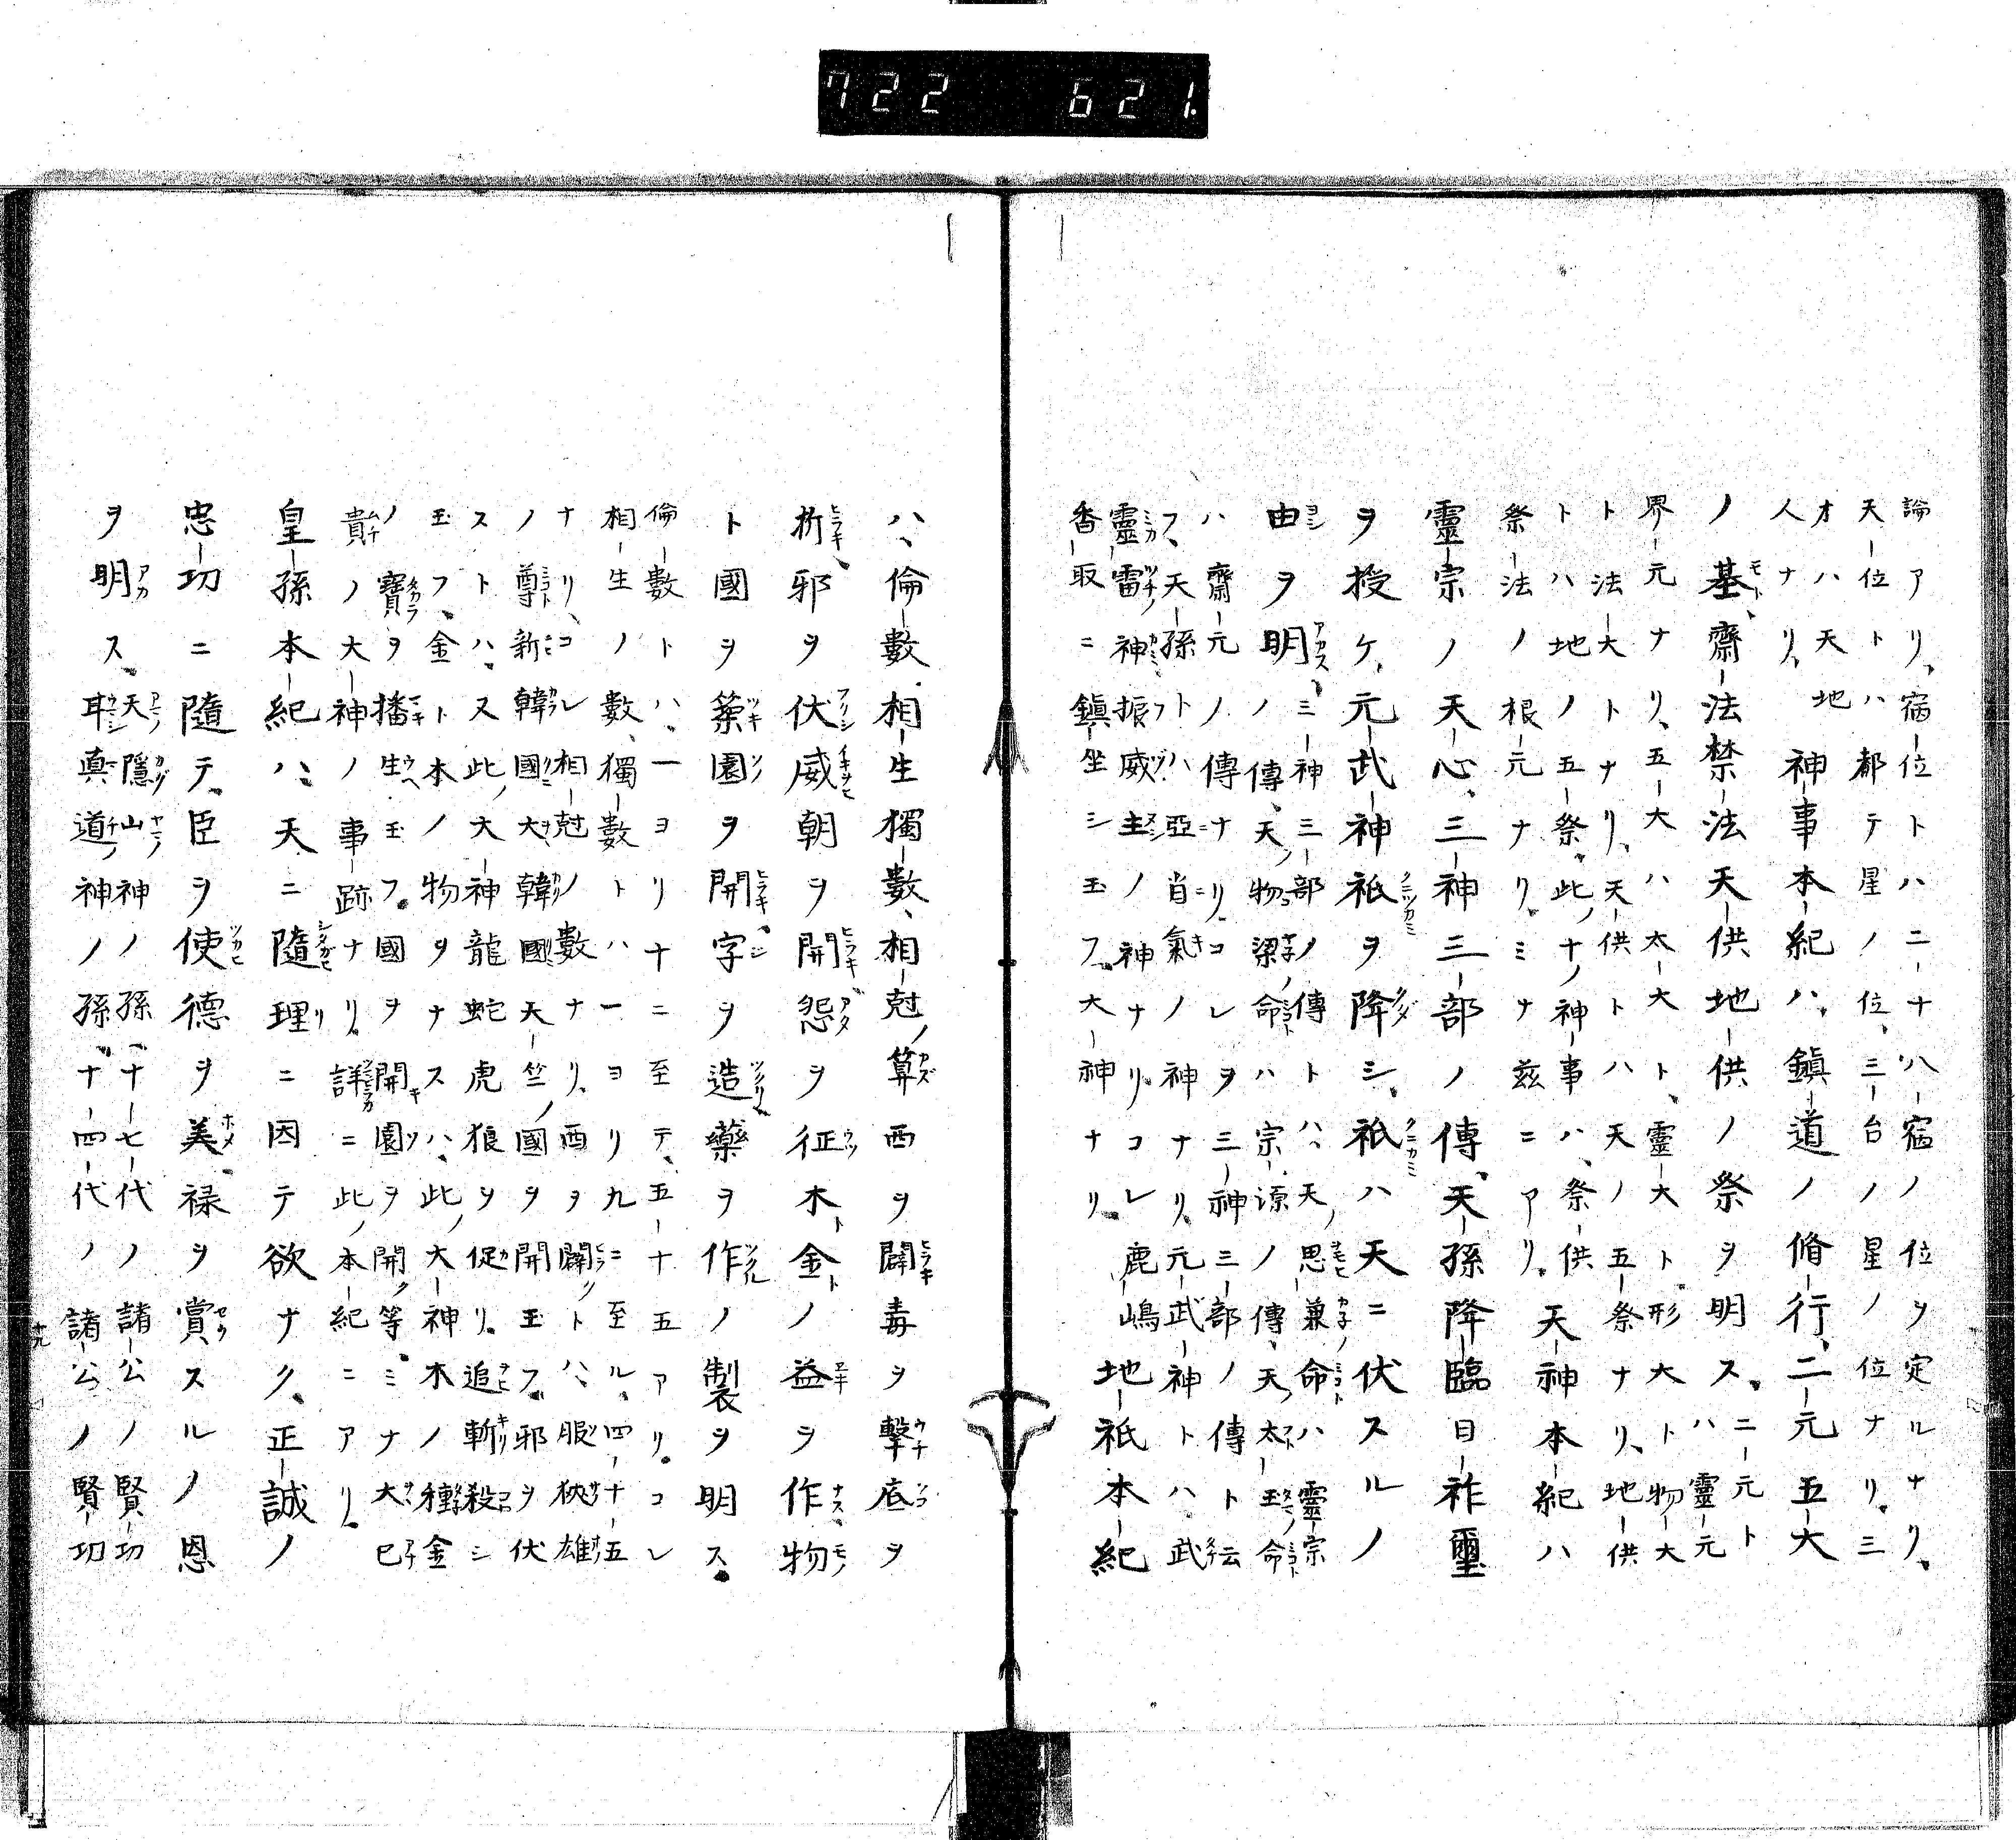 722 621.
論アリ、宿位トハ二十八宿ノ位ヲ定ルナリ、
天位トハ都テ星ノ位、三台ノ星ノ位ナリ。三
才ハ天地
人ナリ、神事本紀ハ、鎮道ノ脩行、二元五大
ノ基、齋法禁法天供地供ノ祭ヲ明ス。二元ト
ハ靈元
界元ナリ、五大ハ太大ト、靈大ト。形大ト物大
ト法大トナリ、天供トハ天ノ五祭ナリ、地供
トハ地ノ五祭。此ノ十ノ神事ハ、祭供
祭法ノ根元ナリ。ミナ茲ニアリ。天神本紀ハ
靈宗ノ天心、三神三部ノ傳、天孫降臨日祚璽
ヲ授ケ、元武神祇ヲ降シ、祇ハ天ニ伏スルノ
由ヲ明ス、三神三部ノ傳トハ、天ノ思兼ノ命ハ靈宗
ノ傳、天ノ物梁ノ命ハ宗源ノ傳、天ノ太玉ノ命
ハ齋元ノ傳ナリ。コレヲ三神三部ノ傳ト云
フ、天孫トハ亞肖氣ノ神ナリ、元武神トハ武
靈雷ノ神振威主ノ神ナリ。コレ鹿嶋
香取ニ鎮坐シ玉フ。大神ナリ。地祇本紀
ハ、倫數相生獨數、相尅ノ算西ヲ闢毒ヲ撃底ヲ
折邪ヲ伏威朝ヲ開怨ヲ征木金ノ益ヲ作、物
ト國ヲ築園ヲ開字ヲ造藥ヲ作ノ製ヲ明ス。
倫數トハ、一ヨリ十ニ至テ、五十五アリ。コレ
相生ノ數、獨數トハ一ヨリ九ニ至ル、四十五
ナリ、コレ相尅ノ數ナリ、西ヲ闢トハ、服狹雄
ノ尊新韓國大韓國天竺ノ國ヲ開玉フ。邪ヲ伏
ストハ、又此ノ大神龍蛇虎狼ヲ促リ。追斬殺シ
玉フ、金ト本ノ物ヲナスハ、此ノ大神木ノ種金
ノ寶ヲ播生玉フ。國ヲ開園ヲ開等ミナ大巳
貴ノ大神ノ事跡ナリ。詳ニ此ノ本紀ニアリ。
皇孫本紀ハ、天ニ隨理ニ因テ欲ナク、正誠ノ
忠功ニ隨テ。臣ヲ使德ヲ美、禄ヲ賞スルノ恩
ヲ明ス。天隱山神ノ孫、十七代ノ諸公ノ賢功
耳眞道神ノ孫、十四代ノ諸公ノ賢功
十九